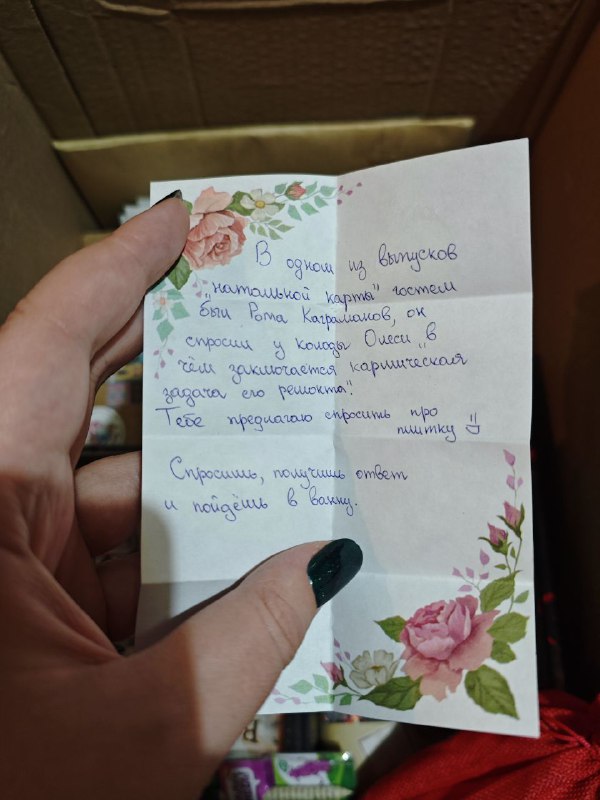 В одном из выпусков
"натальной карты" гостем
был Рома Каграманов, он
спросил у колоды Олеси „в
чём заключается кармическая
задача его ремонта".
Тебе предлагаю спросить про
плитку =)
Спросишь, получишь ответ
и пойдёшь в ванну.